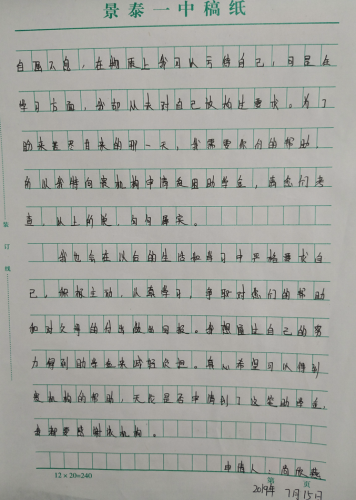 景泰一中稿纸
自强不息，在物质上我可以亏待自己，可是在
学习方面，我却从未对自己放松过要求。为了
助来苦尽甘来的那一天，我需要你们的帮助。
所以我特向贵机构申请友困助学金，请您们考
查。以上所说，句句属实。
我也会在以后的生活和学习中严格要求自
己，积极主动，认真学习，争取对您们的帮助
和对父母的付出做出回报。我想通过自己的努
力得到助学金来减轻负担。真心希望可以得到
贵机构的帮助，无论是否申请到了这笔助学金，
我都要感谢贵机构。
申请人：尚欣
2019年7月15日
第 页
12×20=240
装订线